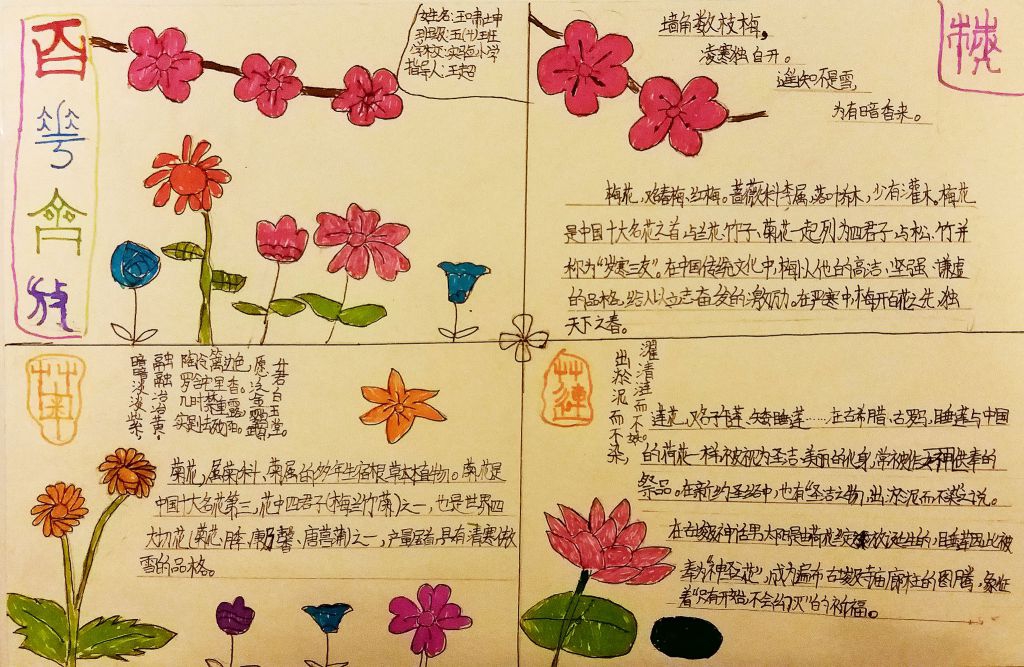 百華齊放
姓名:王啸坤
班级:五
学校:实验小学
指导人:王超
梅
墙角数枝梅,
凌寒独自开。
遥知不是雪,
为有暗香来。
梅花,又名春梅、红梅。蔷薇科李属,落叶乔木,少有灌木。梅花
是中国十大名花之首,与兰花、竹子、菊花一起列为四君子,与松、竹并
称为“岁寒三友”。在中国传统文化中,梅以他的高洁、坚强、谦虚
的品格,给人以立志奋发的激励。在严寒中,梅开百花之先,独
天下之春。
菊
暗暗淡淡紫,
融融冶冶黄。
陶令篱边色,
罗含宅里香。
几时禁重露,
实是怯残阳。
愿泛金鹦鹉,
升君白玉堂。
菊花,属菊科、菊属的多年生宿根草本植物。菊花是
中国十大名花第三,花中四君子(梅兰竹菊)之一,也是世界四
大切花(菊花、月季、康乃馨、唐菖蒲)之一,产量居首,具有清寒傲
雪的品格。
蓮
出淤泥而不染,
濯清涟而不妖。
莲花,又名子午莲、矮睡莲……在古希腊、古罗马,睡莲与中国
的荷花一样,被视为圣洁、美丽的化身,常被作供奉的
祭品。在新约圣经中,也有“圣洁之物,出淤泥而不染”之说。
在古埃神话里,太阳是由荷花绽放诞生的,睡莲因此被
奉为“神圣花”,成为遍布古埃寺庙廊柱的图腾,象征
着“只有开始,不会幻灭”的祈福。